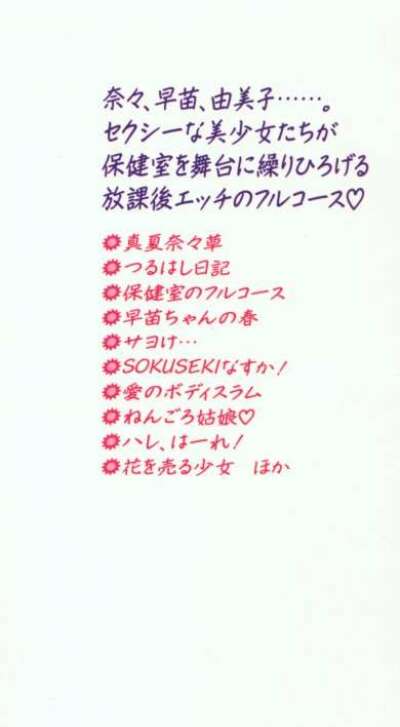 奈々、早苗、由美子……。
セクシーな美少女たちが
保健室を舞台に繰りひろげる
放課後エッチのフルコース♡
真夏奈々草
つるはし日記
保健室のフルコース
早苗ちゃんの春
サヨけ…
SOKUSEKIなすか！
愛のボディスラム
ねんごろ姑娘♡
ハレ、はーれ！
花を売る少女　ほか